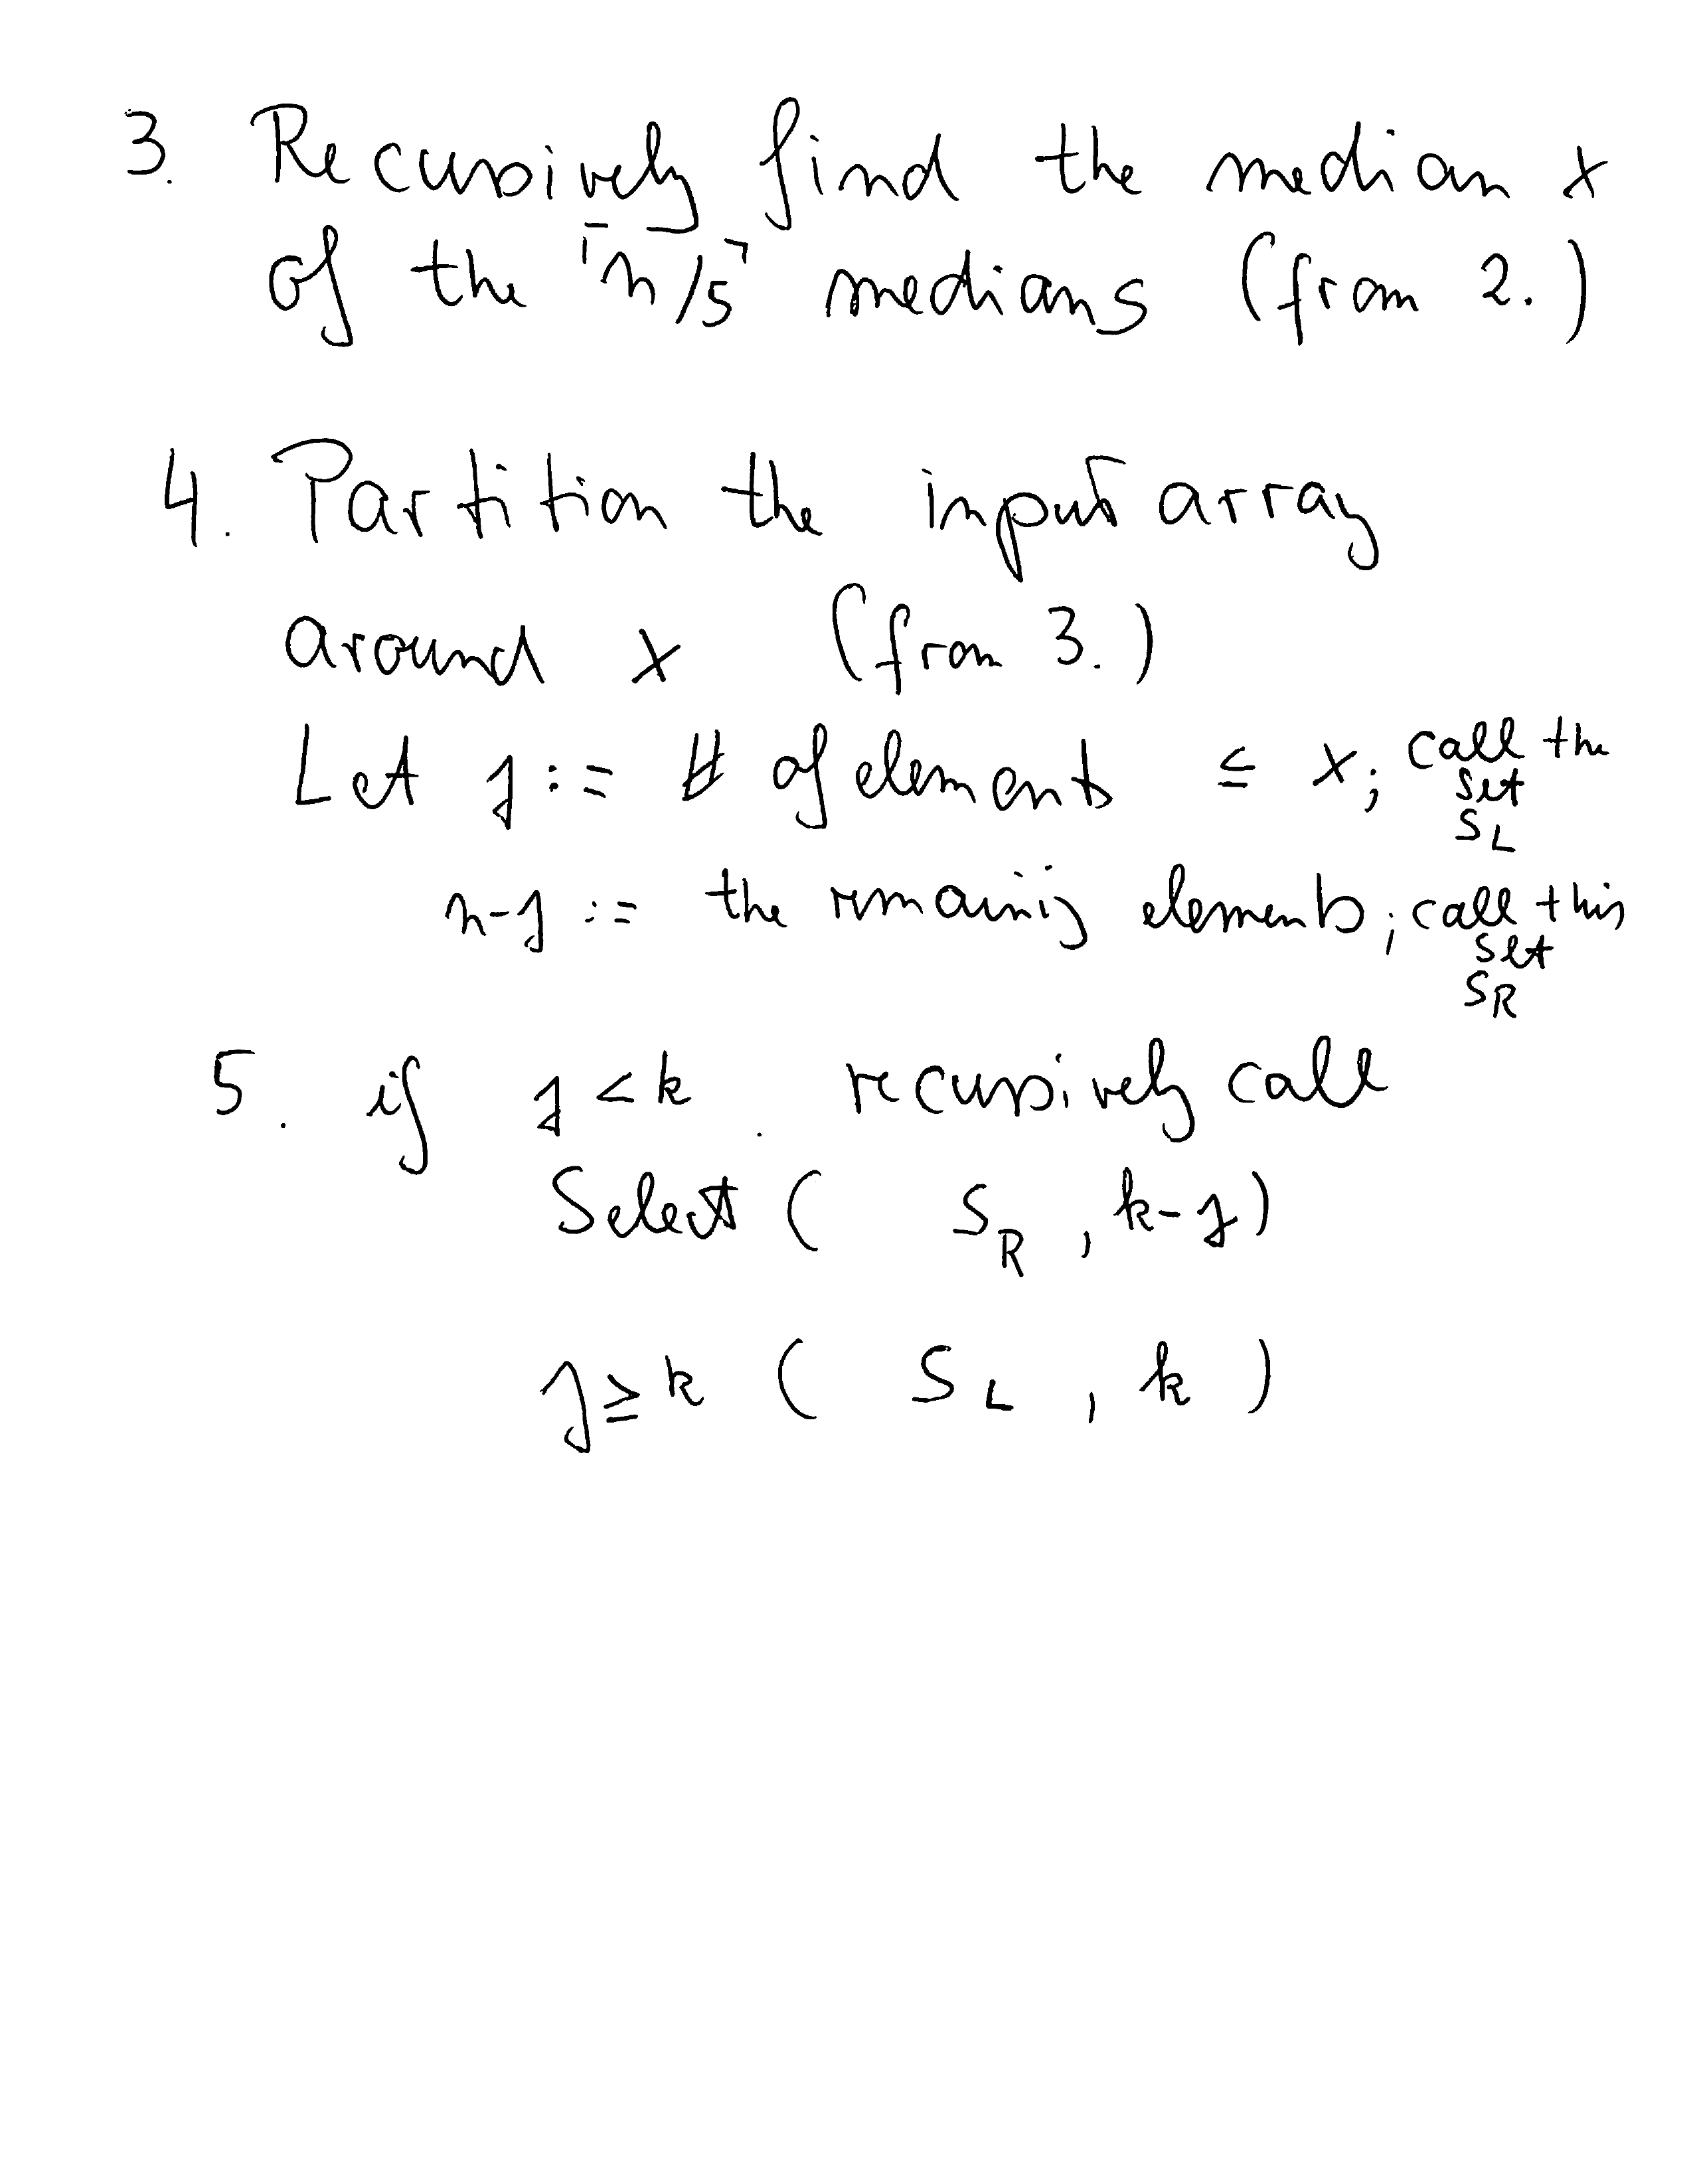 3. Recursively find the median x
of the ⌈n/5⌉ medians (from 2.)
4. Partition the input array
around x (from 3.)
Let j := # of elements ≤ x; call the
set
S_L
n-j := the remaining elements; call this
set
S_R
5. if j < k recursively call
Select ( S_R , k-j )
j ≥ k ( S_L , k )